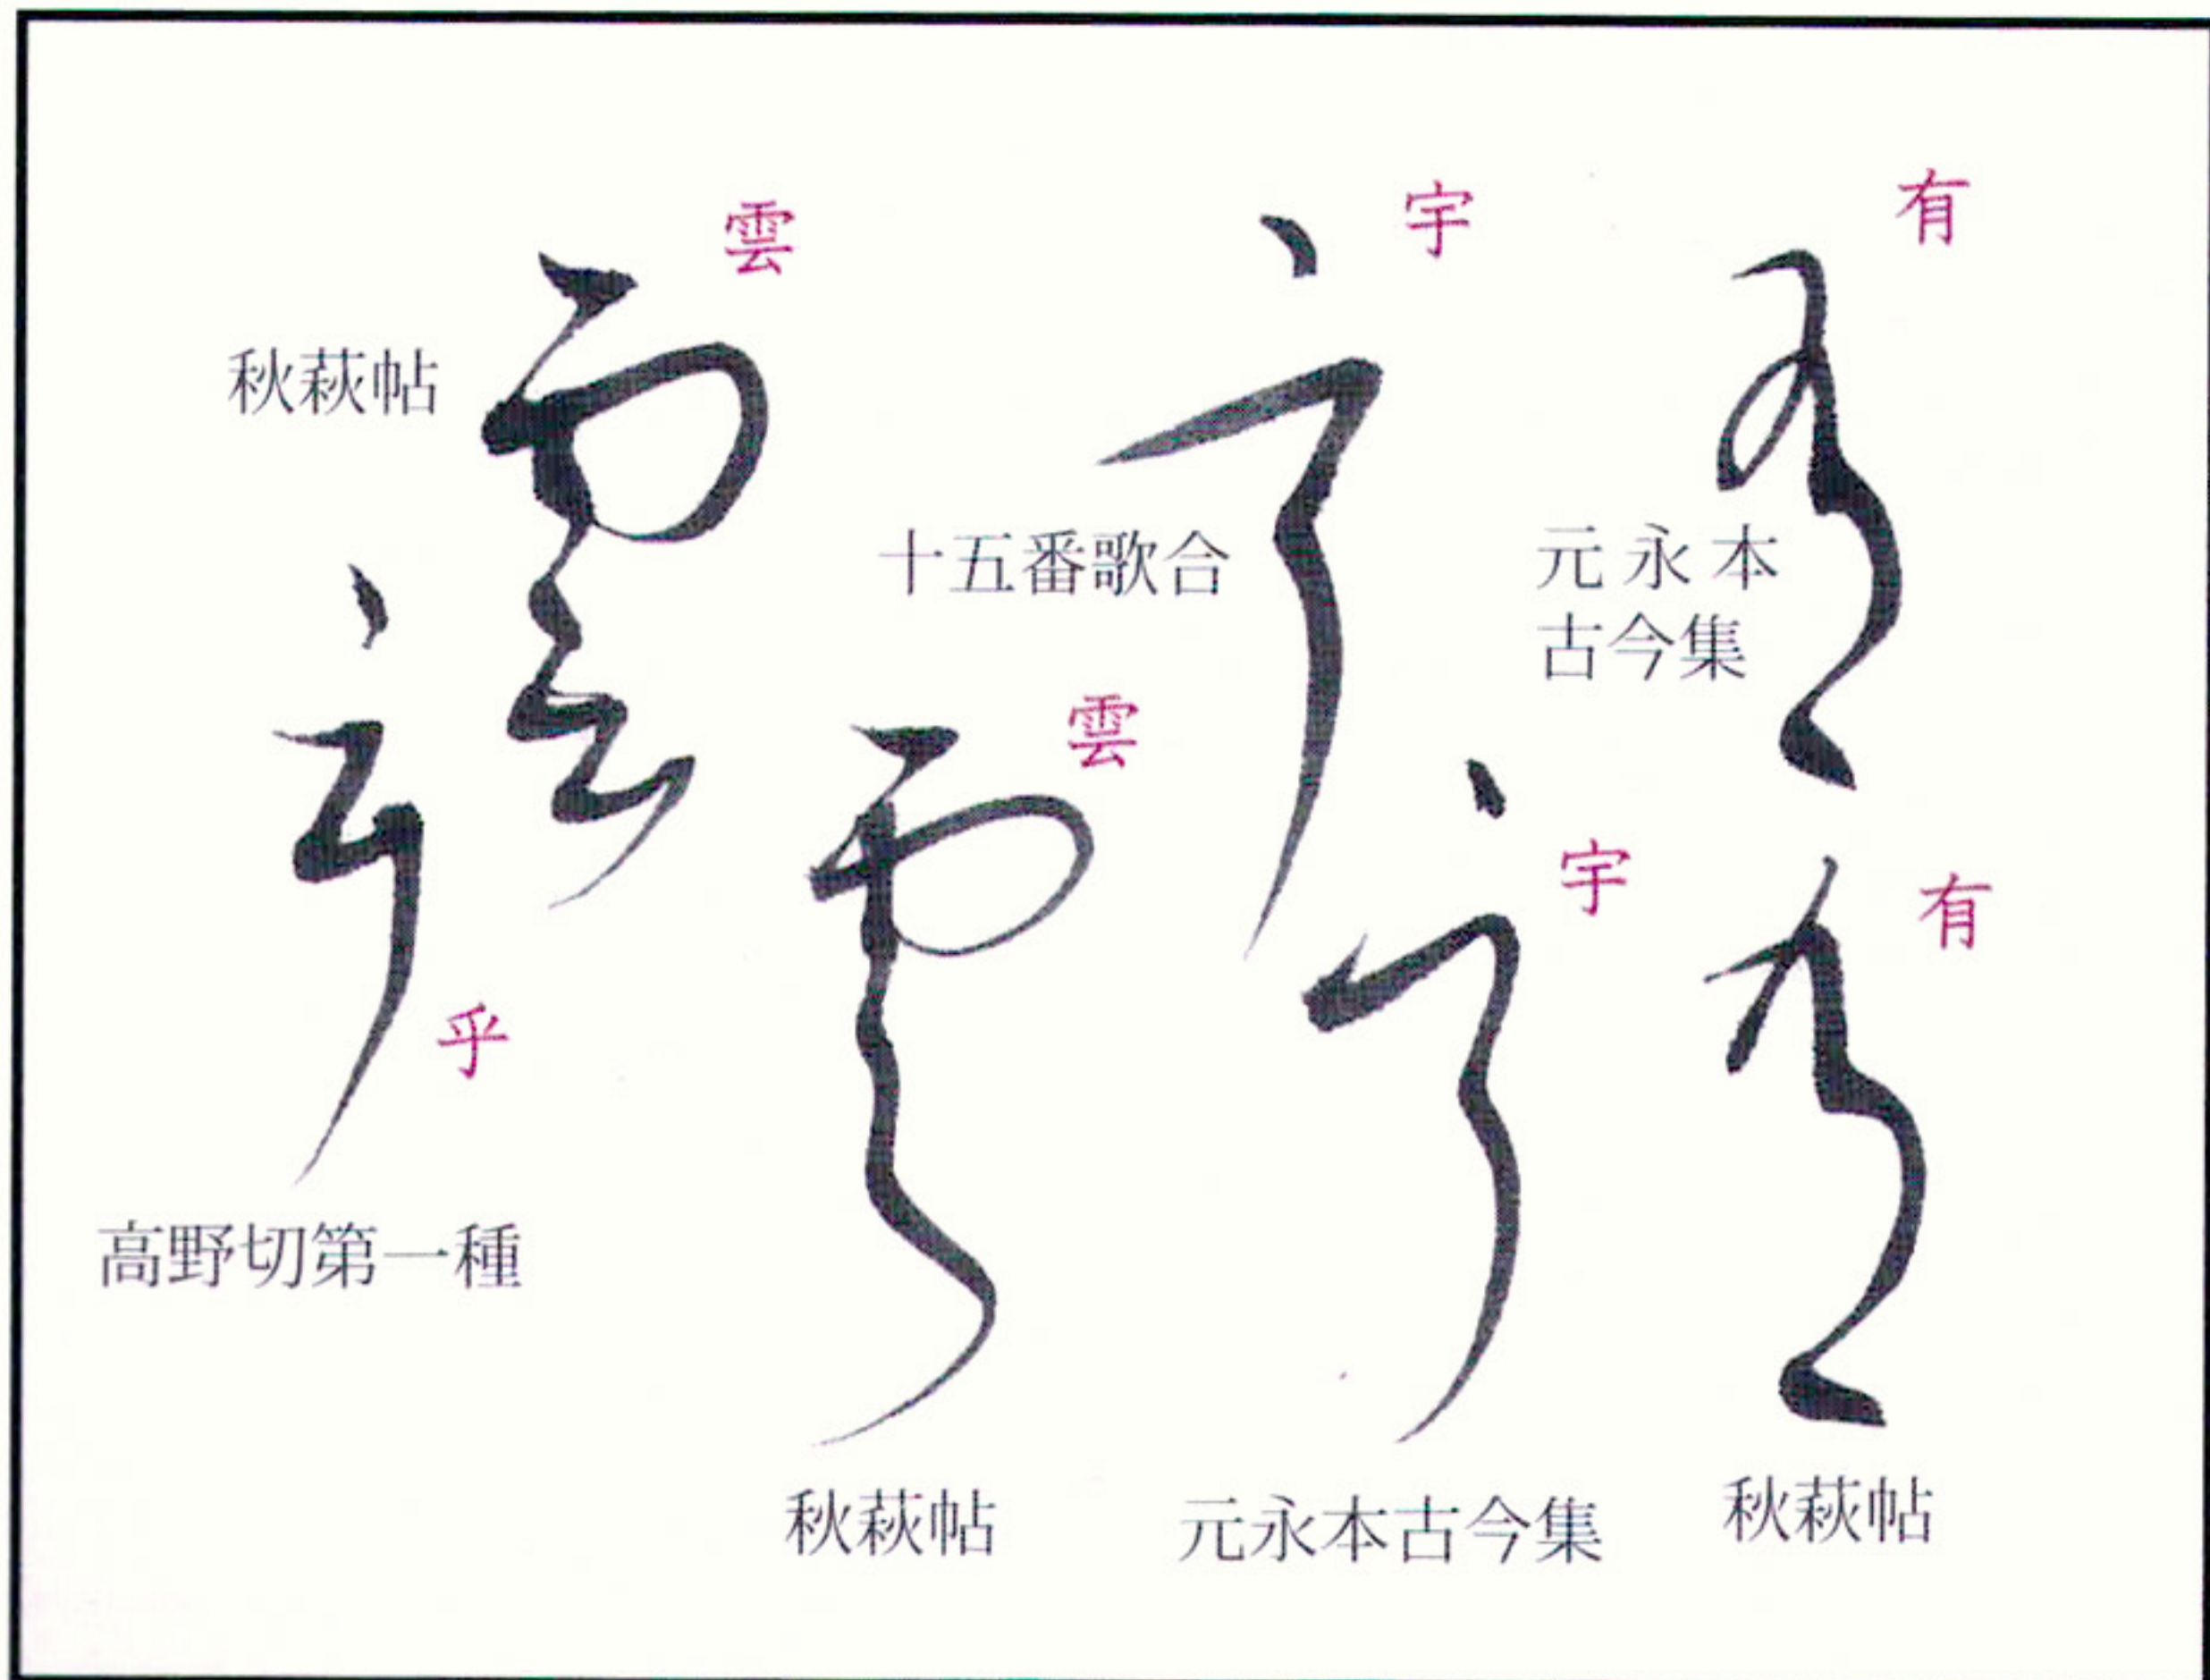 有
元永本
古今集
有
秋萩帖
宇
十五番歌合
宇
元永本古今集
雲
秋萩帖
雲
秋萩帖
乎
高野切第一種